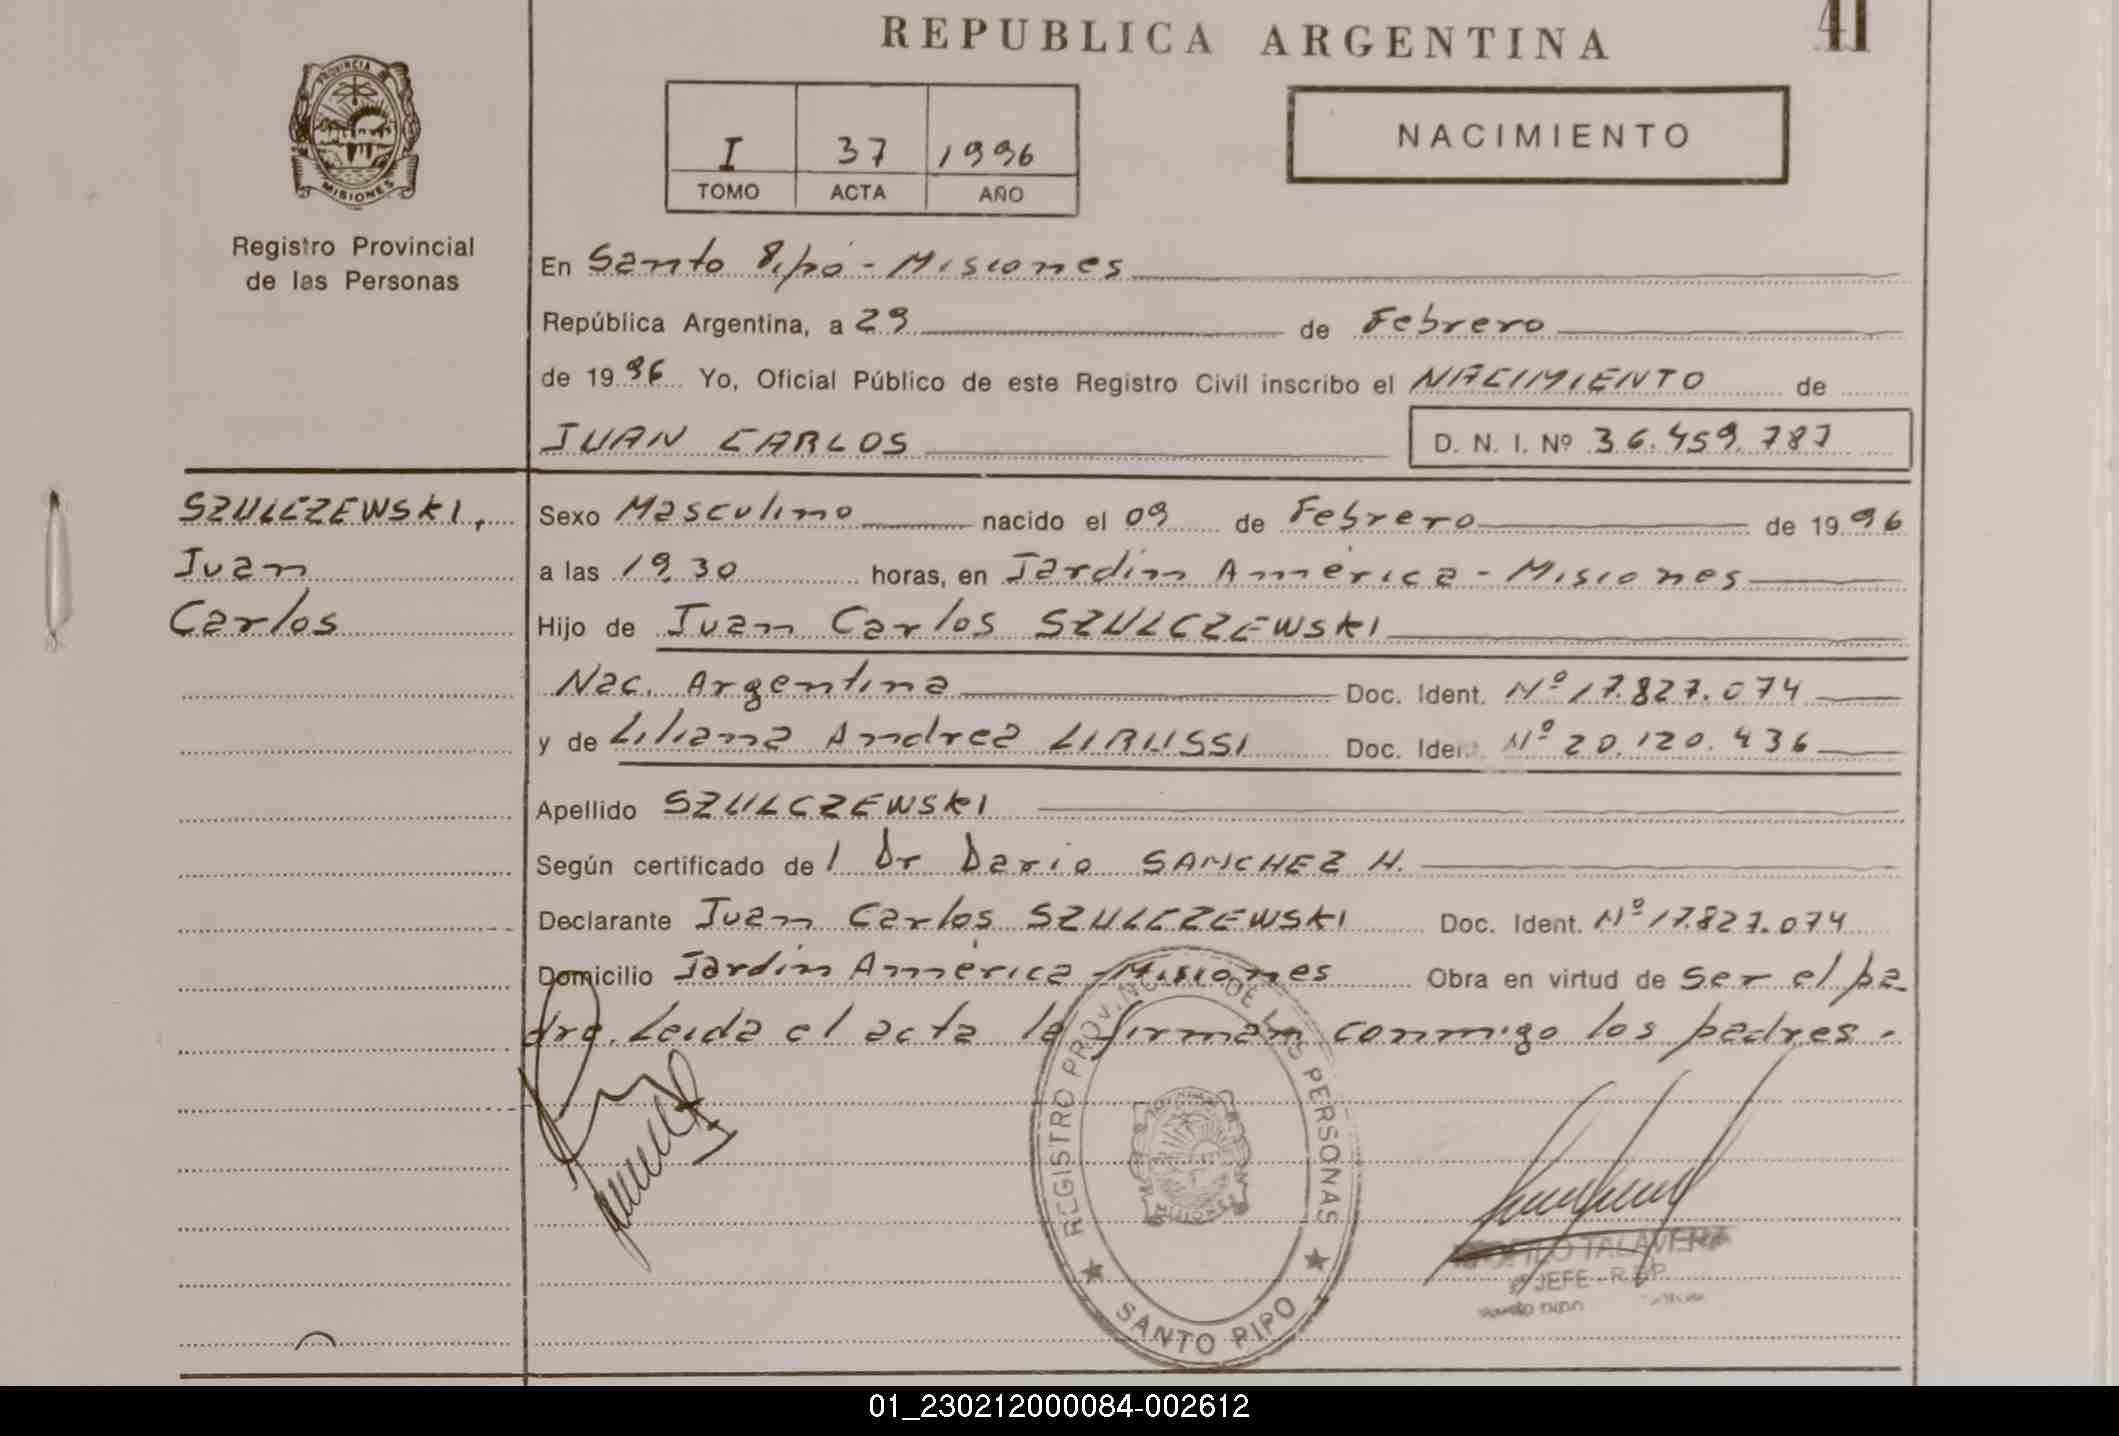 REPUBLICA ARGENTINA
41
PROVINCIA DE
MISIONES
Registro Provincial
de las Personas
I 37 1996
TOMO ACTA AÑO
NACIMIENTO
En Santo Pipó - Misiones
República Argentina, a 29 de Febrero
de 1996 Yo, Oficial Público de este Registro Civil inscribo el NACIMIENTO de
JUAN CARLOS
D. N. I. Nº 36.459.787
SZULCZEWSKI,
Juan
Carlos
Sexo Masculino nacido el 09 de Febrero de 1996
a las 19,30 horas, en Jardín América - Misiones
Hijo de Juan Carlos SZULCZEWSKI
Nac. Argentina Doc. Ident. Nº 17.827.074
y de Liliana Andrea LIRUSSI Doc. Ident. Nº 20.120.436
Apellido SZULCZEWSKI
Según certificado del Dr Dario SANCHEZ H.
Declarante Juan Carlos SZULCZEWSKI Doc. Ident. Nº 17.827.074
Domicilio Jardín América - Misiones Obra en virtud de ser el pa
dre. Leida el acta la firman conmigo los padres.
REGISTRO PROV. DE LAS PERSONAS
MISIONES
SANTO PIPO
TALAVERA
JEFE - R.P.P
01_230212000084-002612